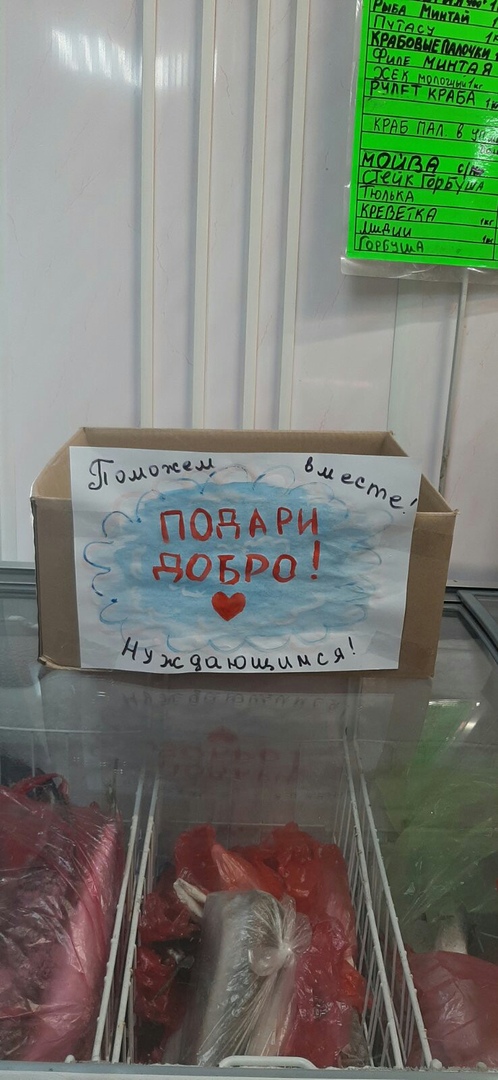 РЫБА МИНТАЙ
ПУТАСУ
КРАБОВЫЕ ПАЛОЧКИ
ФИЛЕ МИНТАЯ
ХЕК МОЛОЧНЫЙ 1кг
РУЛЕТ КРАБА 1к
КРАБ ПАЛ В
МОЙВА
СТЕЙК ГОРБУША
ТЮЛЬКА
КРЕВЕТКА 1кг
МИДИИ 1к
ГОРБУША
Поможем вместе!
ПОДАРИ
ДОБРО!
Нуждающимся!